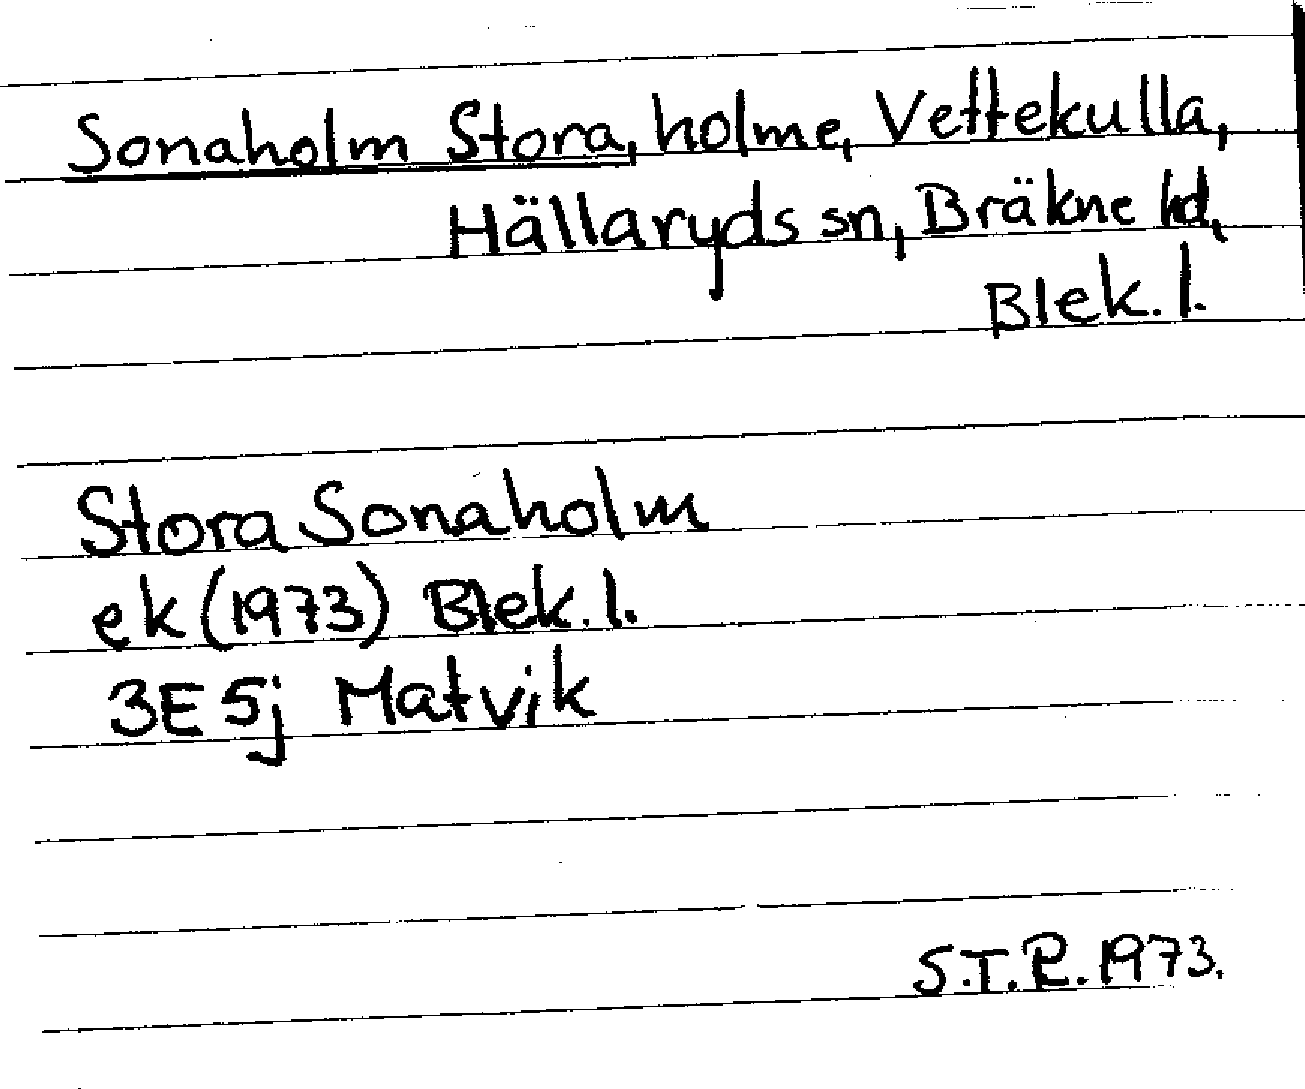 Sonaholm Stora, holme, Vettekulla,
Hällaryds sn, Bräkne hd,
Blek. l.
Stora Sonaholm
ek (1973) Blek. l.
3E 5j Matvik
S.T.R. 1973.